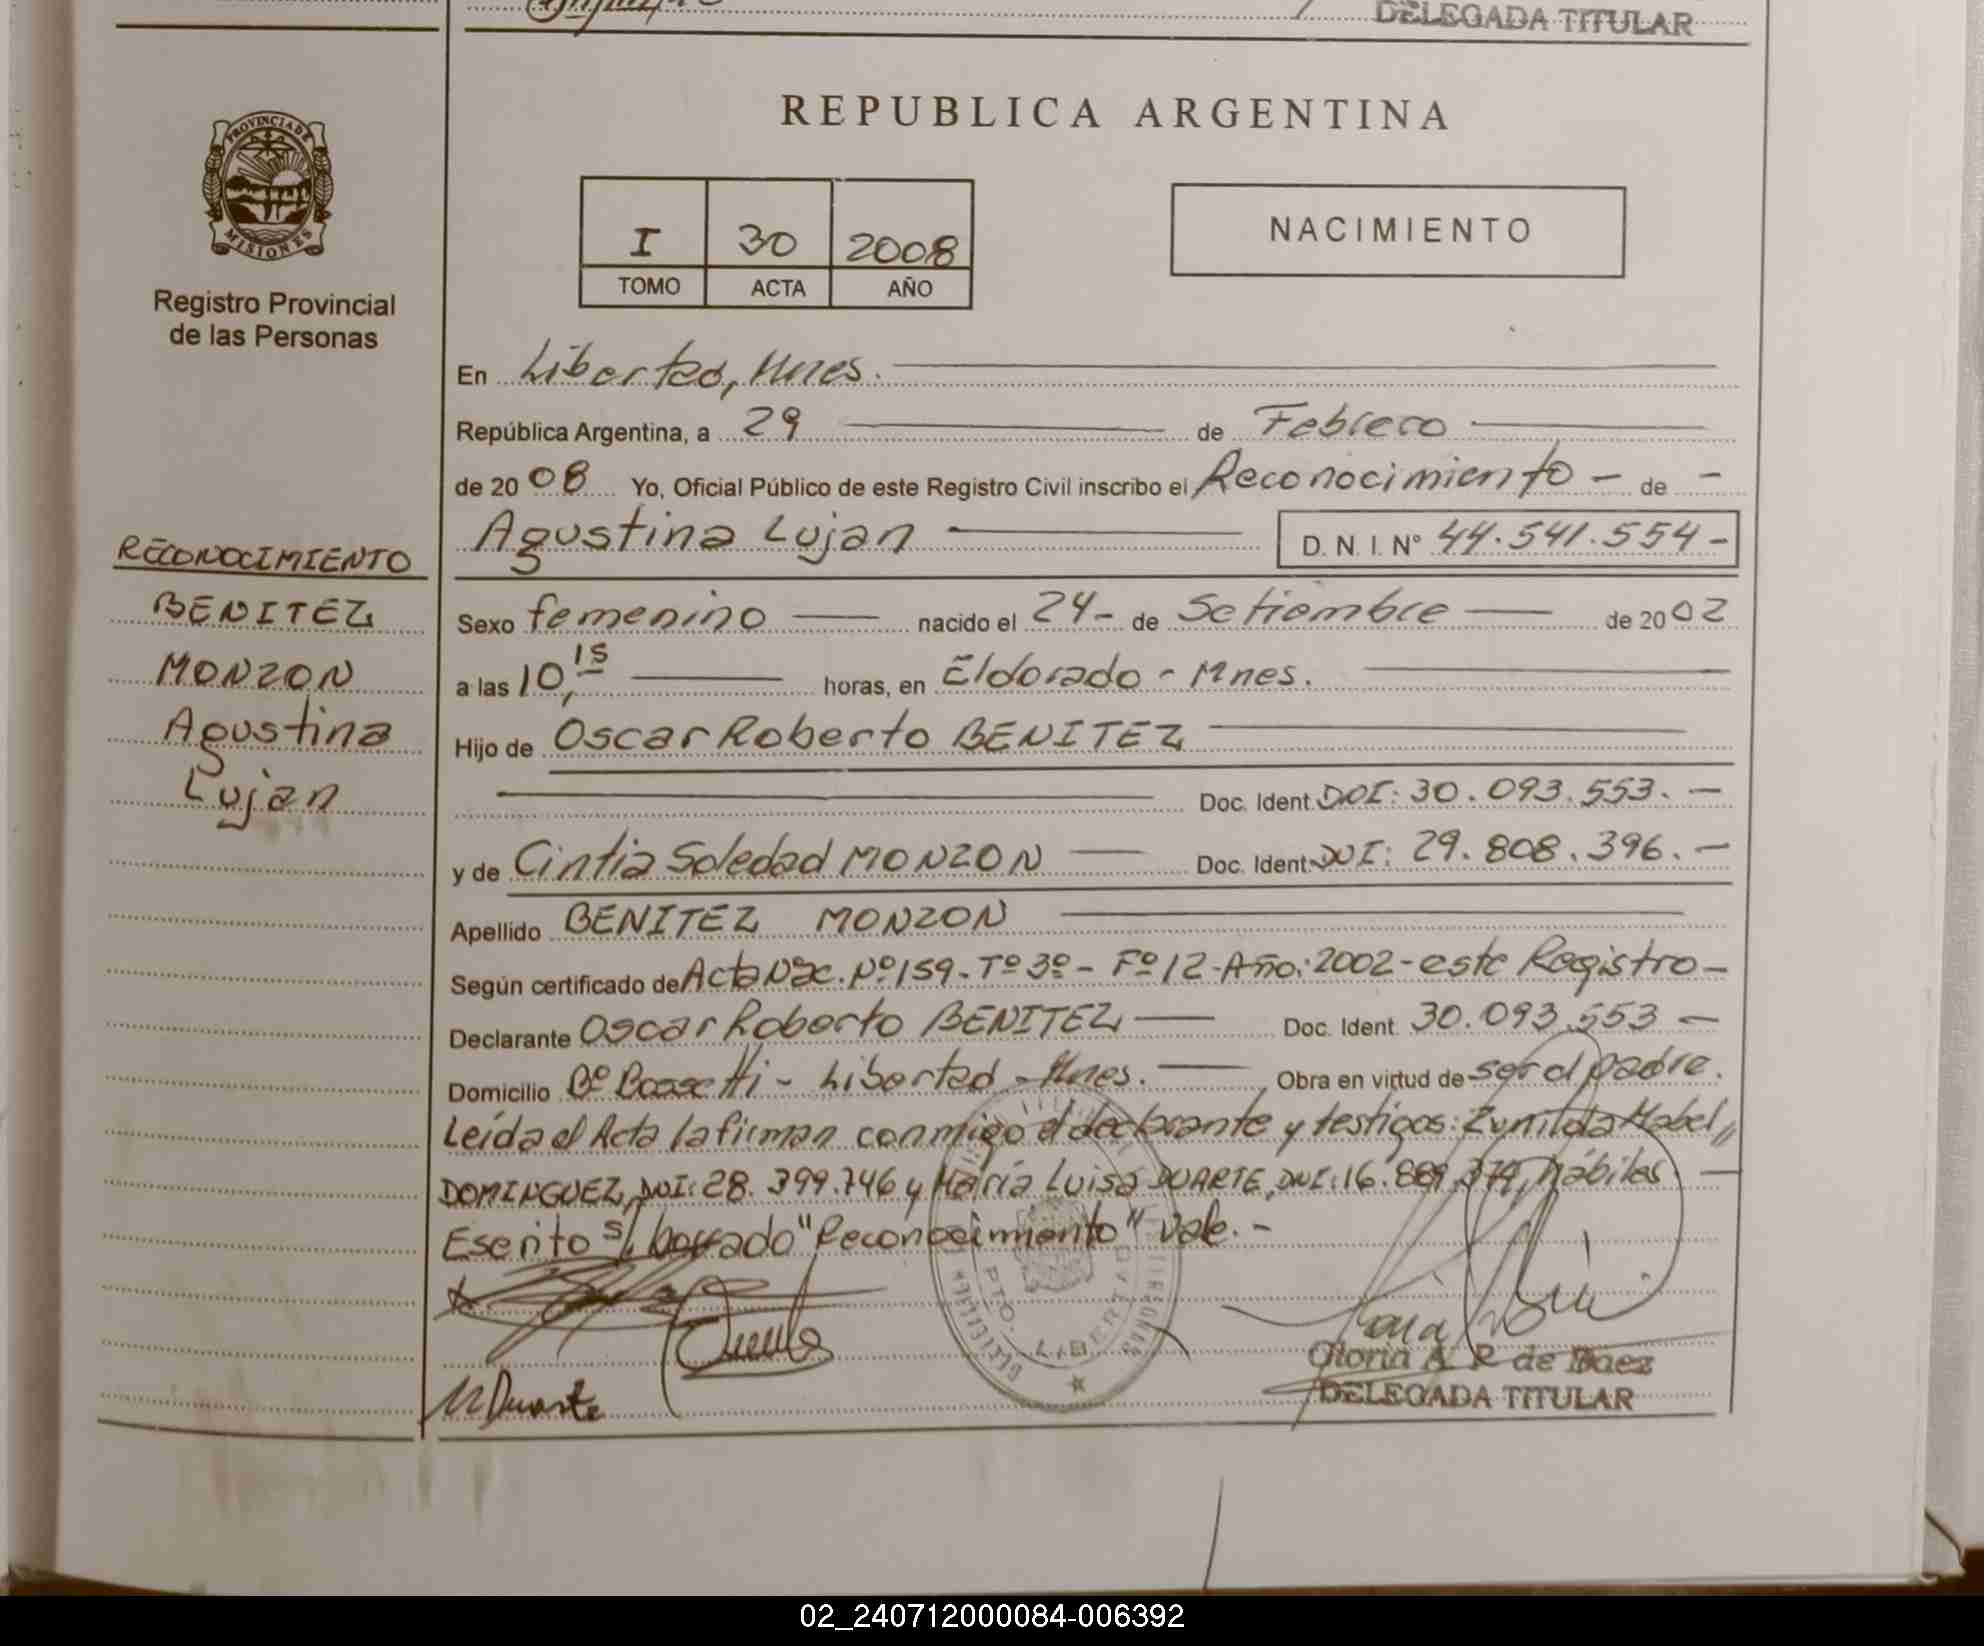 DELEGADA TITULAR
PROVINCIA DE
MISIONES
Registro Provincial
de las Personas
REPUBLICA ARGENTINA
I 30 2008
TOMO ACTA AÑO
NACIMIENTO
En Libertad, Mnes.
República Argentina, a 29 de Febrero
de 2008 Yo, Oficial Público de este Registro Civil inscribo el Reconocimiento - de -
Agustina Lujan D. N. I. Nº 44.541.554-
RECONOCIMIENTO
BENITEZ
MONZON
Agustina
Lujan
Sexo femenino nacido el 24- de Setiembre de 2002
a las 10,15 horas, en Eldorado - Mnes.
Hijo de Oscar Roberto BENITEZ
Doc. Ident. DNI: 30.093.553.-
y de Cintia Soledad MONZON Doc. Ident. DNI: 29.808.396.-
Apellido BENITEZ MONZON
Según certificado de Acta Nac. Nº 159- Tº 3º- Fº 12- Año: 2002- este Registro-
Declarante Oscar Roberto BENITEZ Doc. Ident. 30.093.553 -
Domicilio Bº Bossetti - Libertad - Mnes. Obra en virtud de ser el padre.
Leída el Acta la firman conmigo el declarante y testigos: Zunilda Mabel //
DOMINGUEZ, DNI: 28.399.746 y María Luisa DUARTE, DNI: 16.889.379, hábiles.
Escrito s/ borrado "Reconocimiento" Vale.-
PTO. LIBERTAD
M Duarte
Gloria A. R. de Baez
DELEGADA TITULAR
02_240712000084-006392